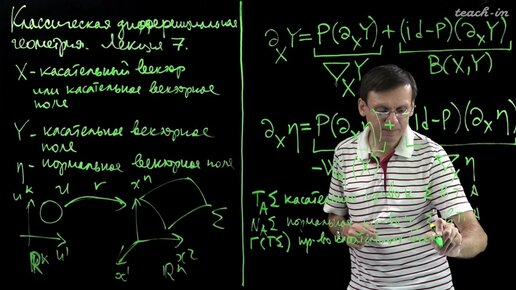 teach-in
Классическая дифференциальная
геометрия. Лекция 7.
X - касательный вектор
или касательное векторное
поле
Y - касательное векторное
поле.
η - нормальное векторное поле
u^k U r x^n Σ
R^k u^1 x^1 R^n x^2
∂_X Y = P(∂_X Y) + (id-P)(∂_X Y)
∇_X Y B(X,Y)
∂_X η = P(∂_X η) + (id-P)(∂_X η)
T_AΣ касательное
N_AΣ нормальное
Γ(TΣ) пр-во